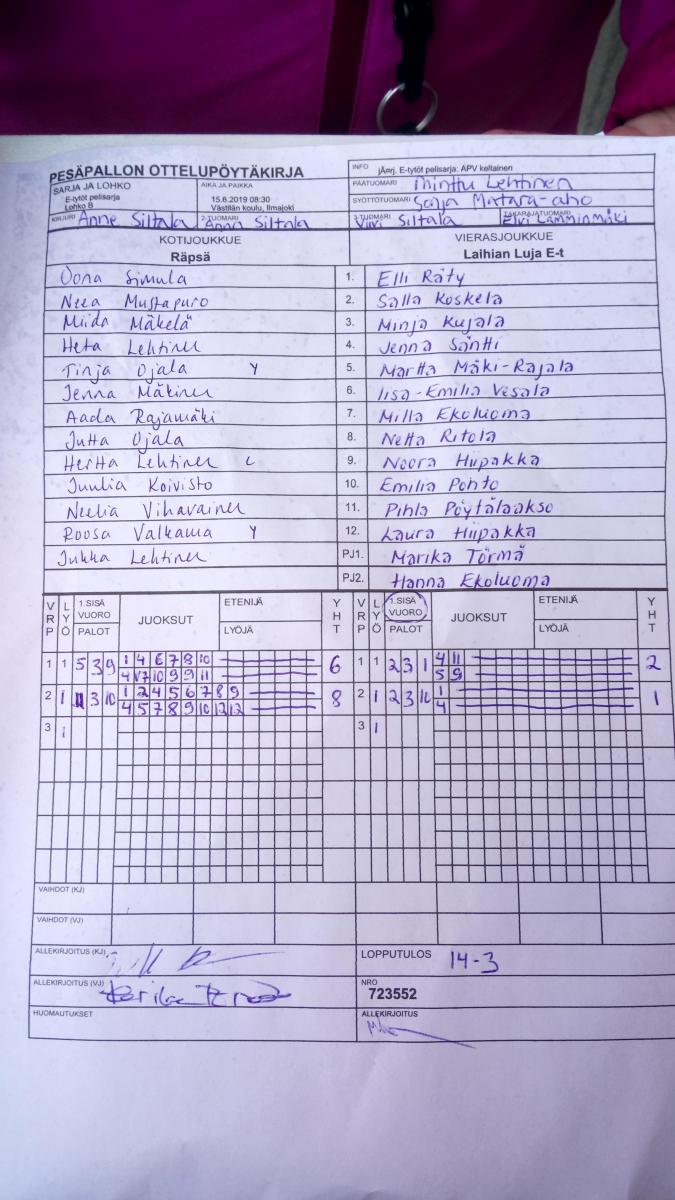 PESÄPALLON OTTELUPÖYTÄKIRJA
INFO jÄærj. E-tytöt pelisarja: APV keltainen
SARJA JA LOHKO
E-tytöt pelisarja
Lohko B
AIKA JA PAIKKA
15.6.2019 08:30
Västilän koulu, Ilmajoki
PÄÄTUOMARI Minttu Lehtinen
SYÖTTÖTUOMARI Sonja Matara-aho
KIRJURI Anne Siltala 2-TUOMARI Anna Siltala 3-TUOMARI Viivi Siltala TAKARAJATUOMARI Elvi Lamminmäki
KOTIJOUKKUE VIERASJOUKKUE
Räpsä Laihian Luja E-t
Oona Simula 1. Elli Räty
Neea Mustapuro 2. Salla Koskela
Miida Mäkelä 3. Minja Kujala
Heta Lehtinen 4. Jenna Säntti
Tinja Ojala Y 5. Martta Mäki-Rajala
Jenna Mäkinen 6. Iisa-Emilia Vesala
Aada Rajamäki 7. Milla Ekoluoma
Jutta Ojala 8. Netta Ritola
Hertta Lehtinen c 9. Noora Hiipakka
Juulia Koivisto 10. Emilia Pohto
Neelia Vihavainen 11. Pihla Pöytälaakso
Roosa Valkama Y 12. Laura Hiipakka
Jukka Lehtinen PJ1. Marika Törmä
PJ2. Hanna Ekoluoma
VRP LYÖ 1.SISÄ VUORO PALOT JUOKSUT ETENIJÄ LYÖJÄ YHT VRP LYÖ 1.SISÄ VUORO PALOT JUOKSUT ETENIJÄ LYÖJÄ YHT
1 1 5 3 9 1 4 6 7 8 10 6 1 1 2 3 1 4 11 2
4 7 10 9 9 11 5 9
2 1 3 10 1 2 4 5 6 7 8 9 8 2 1 2 3 12 1 1
4 5 7 8 9 10 12 12 4
3 1 3 1
VAIHDOT (KJ)
VAIHDOT (VJ)
ALLEKIRJOITUS (KJ) LOPPUTULOS 14-3
ALLEKIRJOITUS (VJ) NRO
723552
HUOMAUTUKSET ALLEKIRJOITUS